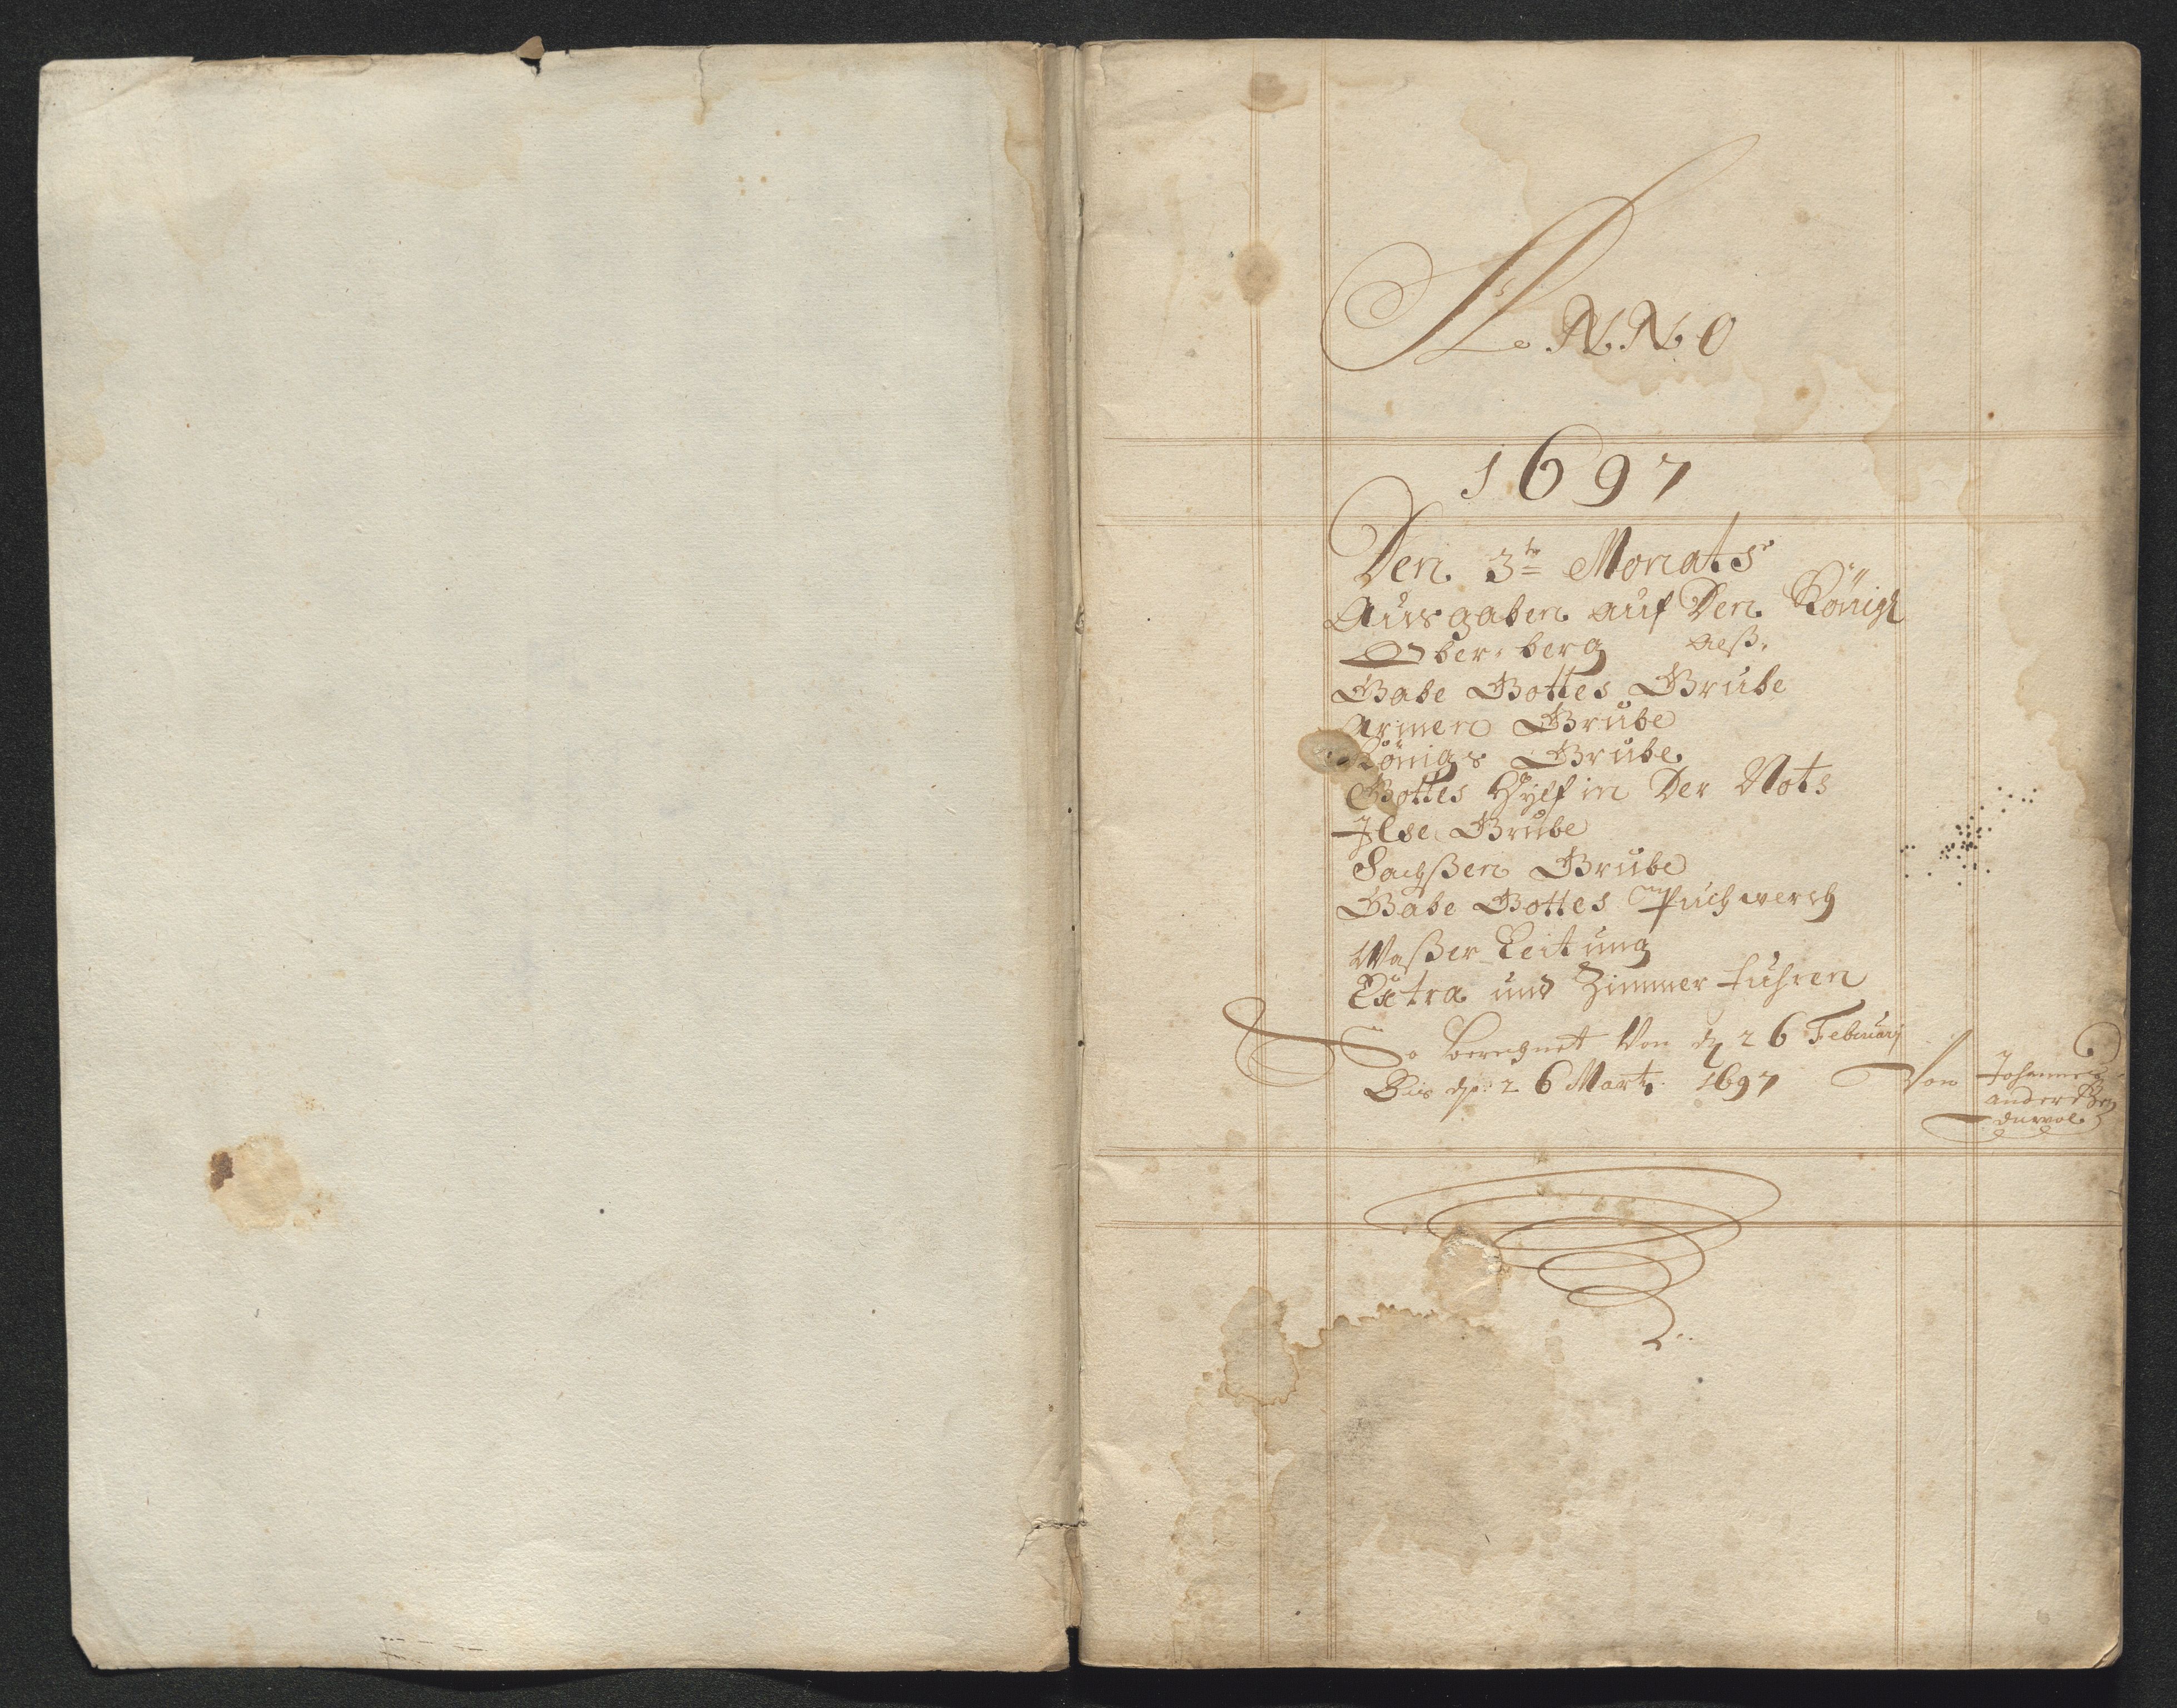 ANNO
1697
Den 3te Monats
Ausgaben auf Den Königl
Ober-berg alß.
Gabe Gottes Grube
Armen Grube
Königs Grube
Gottes Hylf in Der Nots
Ilse Grube
Sachßen Grube
Gabe Gottes Puchwerch
Waßer Leitung
Extra und Zimmer fuhren
So berechnet Von dn 26 Februarj
Bis dn: 26 Marti 1697 Von Johannes